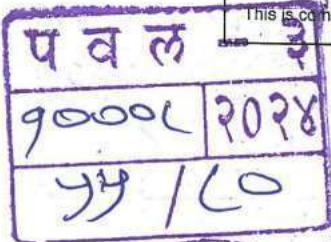 This is com
प व ल - ३
१०००८ २०२४
५५ / ८०